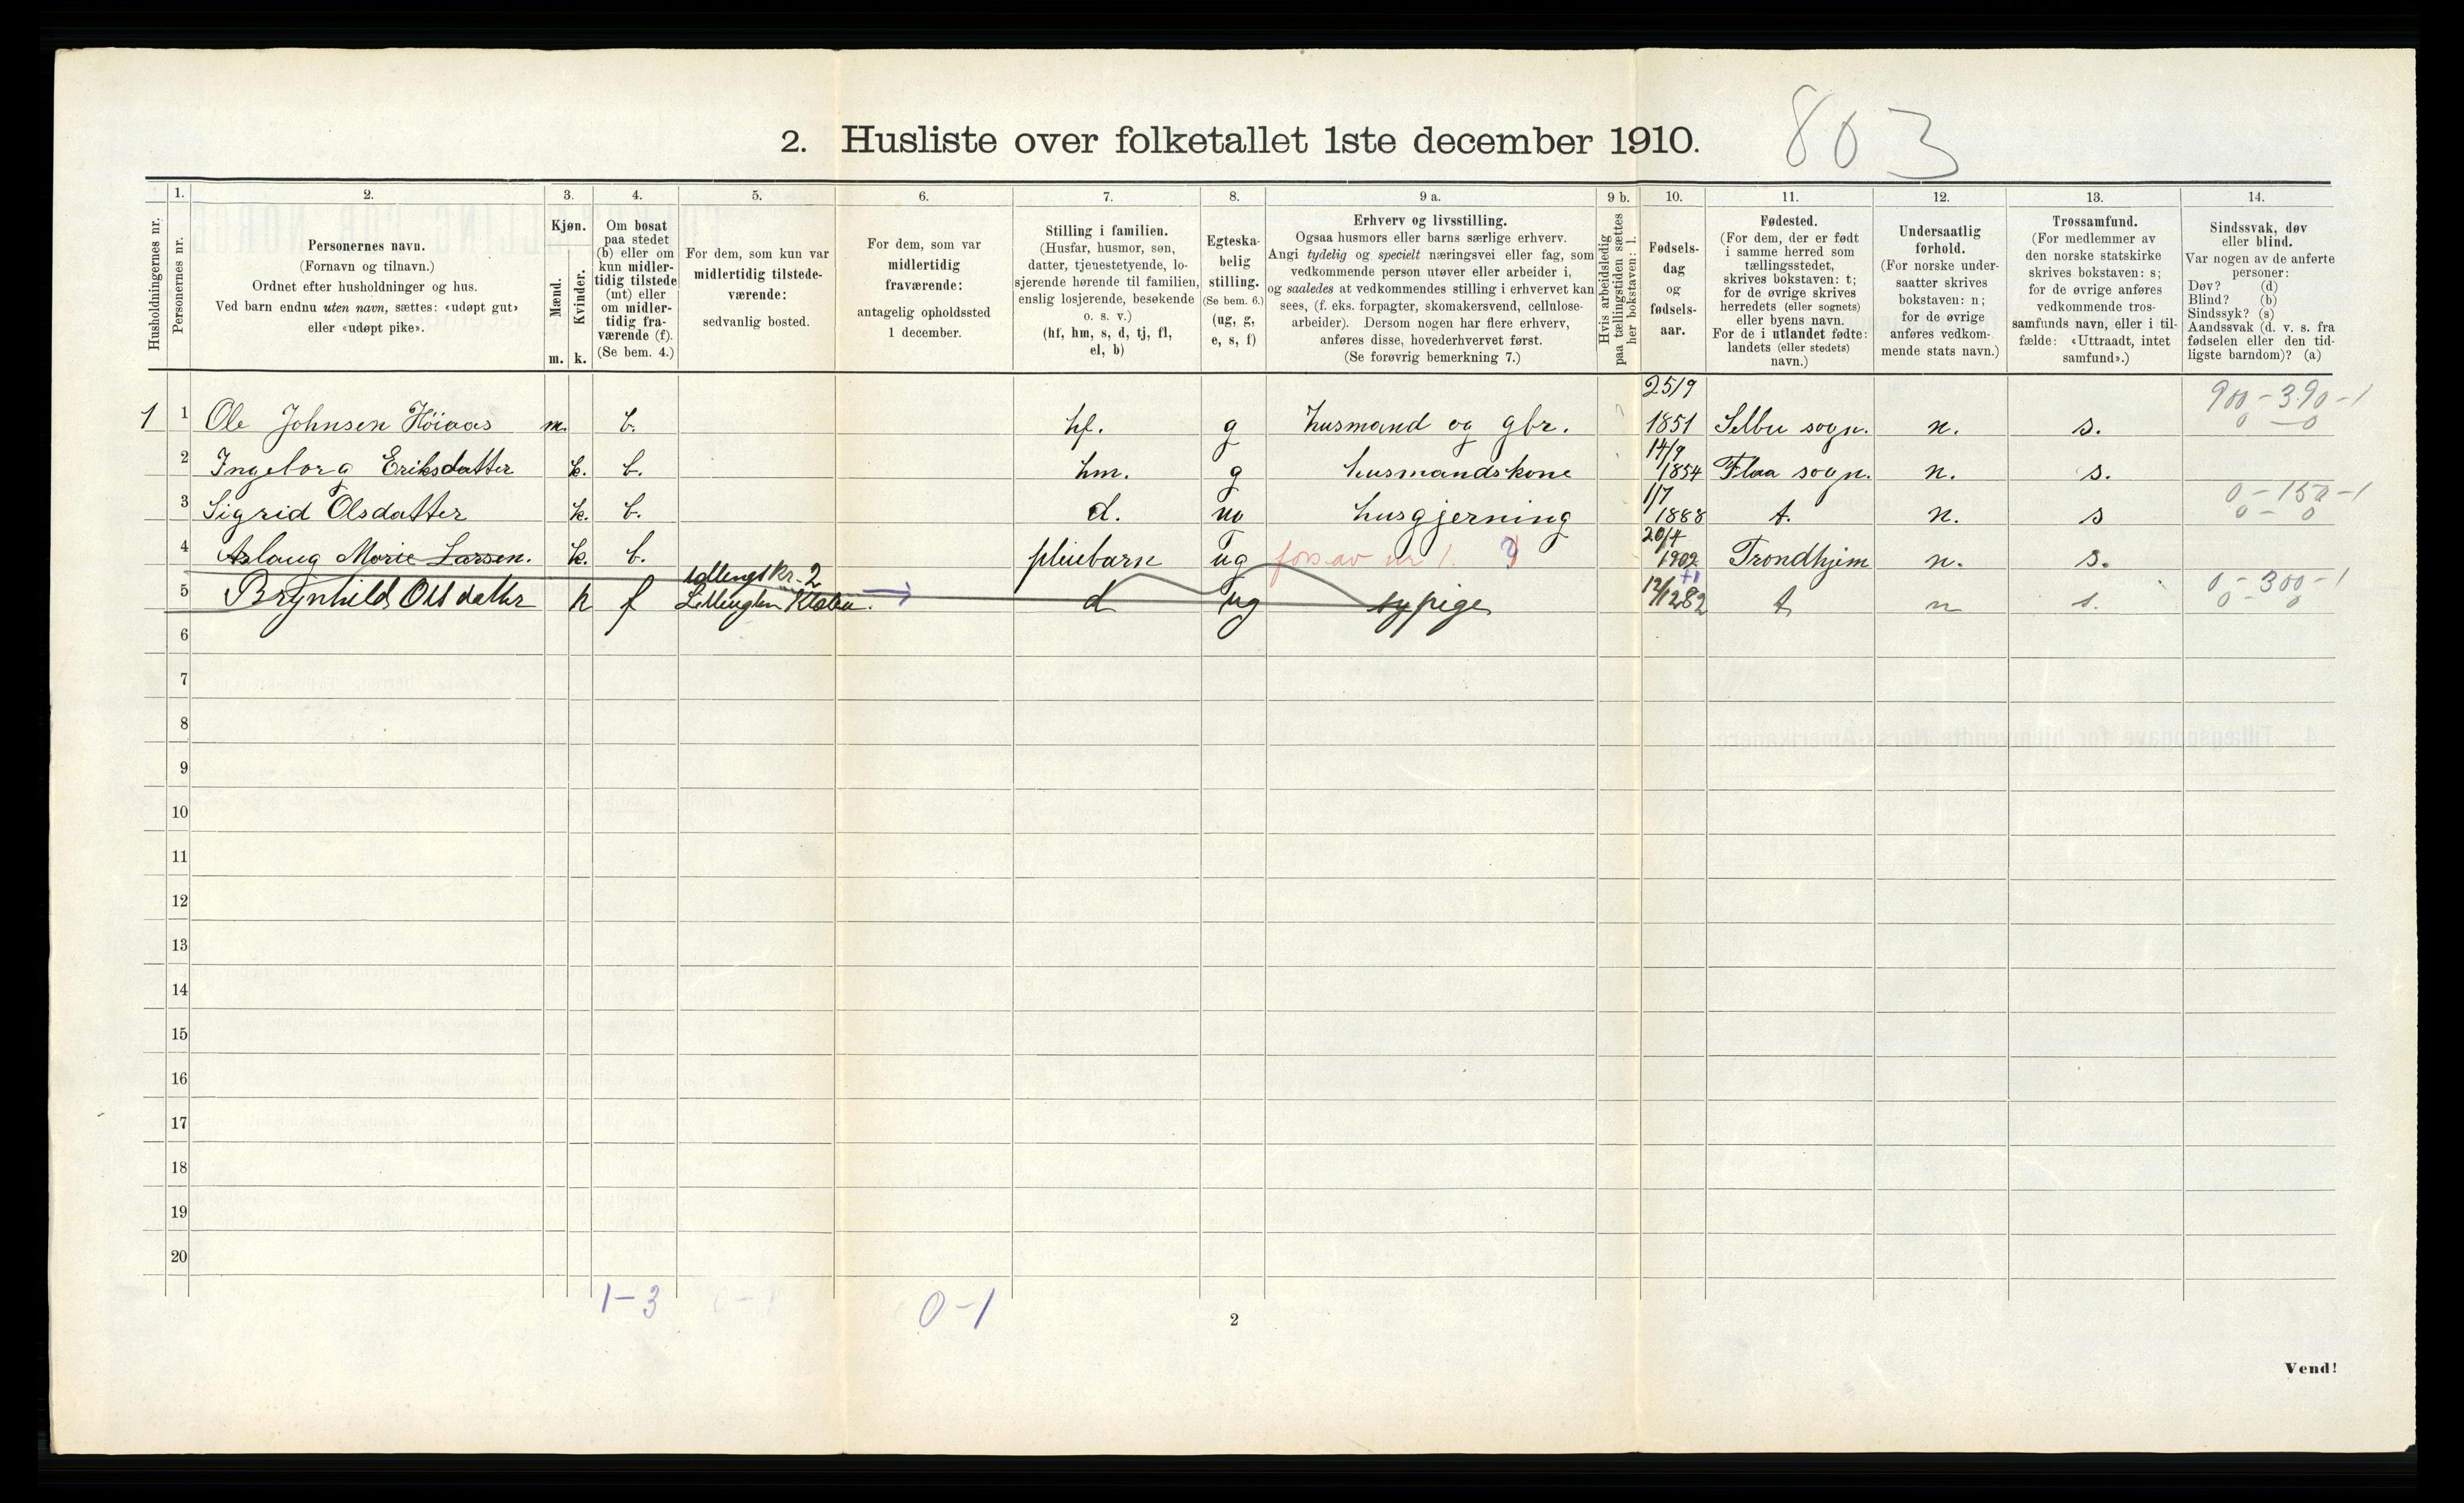 2. Husliste over folketallet 1ste december 1910.
803
Husholdningernes nr.
1.
Personernes nr.
2.
Personernes navn.
(Fornavn og tilnavn.)
Ordnet efter husholdninger og hus.
Ved barn endnu uten navn, sættes: «udøpt gut»
eller «udøpt pike».
3.
Kjøn.
Mænd.
Kvinder.
m. k.
4.
Om bosat
paa stedet
(b) eller om
kun midler-
tidig tilstede
(mt) eller
om midler-
tidig fra-
værende (f).
(Se bem. 4.)
5.
For dem, som kun var
midlertidig tilstede-
værende:
sedvanlig bosted.
6.
For dem, som var
midlertidig
fraværende:
antagelig opholdssted
1 december.
7.
Stilling i familien.
(Husfar, husmor, søn,
datter, tjenestetyende, lo-
sjerende hørende til familien,
enslig losjerende, besøkende
o. s. v.)
(hf, hm, s, d, tj, fl,
el, b)
8.
Egteska-
belig
stilling.
(Se bem. 6.)
(ug, g,
e, s, f)
9 a.
Erhverv og livsstilling.
Ogsaa husmors eller barns særlige erhverv.
Angi tydelig og specielt næringsvei eller fag, som
vedkommende person utøver eller arbeider i,
og saaledes at vedkommendes stilling i erhvervet kan
sees, (f. eks. forpagter, skomakersvend, cellulose-
arbeider). Dersom nogen har flere erhverv,
anføres disse, hovederhvervet først.
(Se forøvrig bemerkning 7.)
9 b.
Hvis arbeidsledig
paa tællingstiden sættes
her bokstaven: l.
10.
Fødsels-
dag
og
fødsels-
aar.
11.
Fødested.
(For dem, der er født
i samme herred som
tællingsstedet,
skrives bokstaven: t;
for de øvrige skrives
herredets (eller sognets)
eller byens navn.
For de i utlandet fødte:
landets (eller stedets)
navn.)
12.
Undersaatlig
forhold.
(For norske under-
saatter skrives
bokstaven: n;
for de øvrige
anføres vedkom-
mende stats navn.)
13.
Trossamfund.
(For medlemmer av
den norske statskirke
skrives bokstaven: s;
for de øvrige anføres
vedkommende tros-
samfunds navn, eller i til-
fælde: «Uttraadt, intet
samfund».)
14.
Sindssvak, døv
eller blind.
Var nogen av de anførte
personer:
Døv? (d)
Blind? (b)
Sindssyk? (s)
Aandssvak (d. v. s. fra
fødselen eller den tid-
ligste barndom)? (a)
1 1 Ole Johnsen Höiaas m. b. hf. g husmand og gbr. 25/9 1851 Selbu sogn. n. s. 900-390-1 0-0
2 Ingeborg Eriksdatter k. b. hm. g husmandskone 14/9 1854 Flaa sogn. n. s.
3 Sigrid Olsdatter k. b. d. ug husgjerning 1/7 1888 t. n. s 0-150-1 0-0
4 Aslaug Marie Larsen. k. b. pleiebarn ug fors. av nr 1. 20/4 1902 Trondhjem n. s.
5 Brynhild Olsdatter k f kr. 2 d ug sypige 12/12 82 t n s. 0-300-1 0-0
6
7
8
9
10
11
12
13
14
15
16
17
18
19
20
1-3 0-1 0-1
2
Vend!